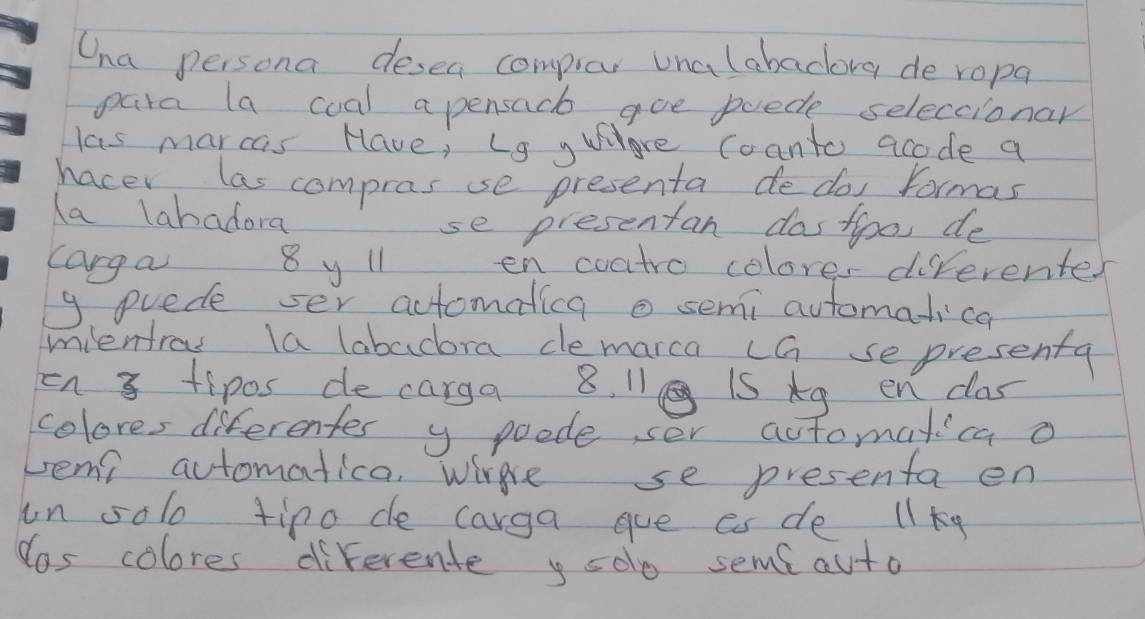 Una persona desea comprar una labadora de ropa
para la cual a pensado que puede seleccionar
las marcas Have, Lg y Wilgre Cuanto acude a
hacer las compras se presenta de dos formas
la labadora se presentan dos tipos de
carga 8 y 11 en cuatro colores diferentes
y puede ser automatica o semi automatica
mientras la labadora de marca LG se presenta
en 3 tipos de carga 8, 11 o 15 kg en dos
colores diferentes y puede ser automatica o
semi automatica. se presenta en
un solo tipo de carga que es de 11 kg
dos colores diferente y solo semi auto